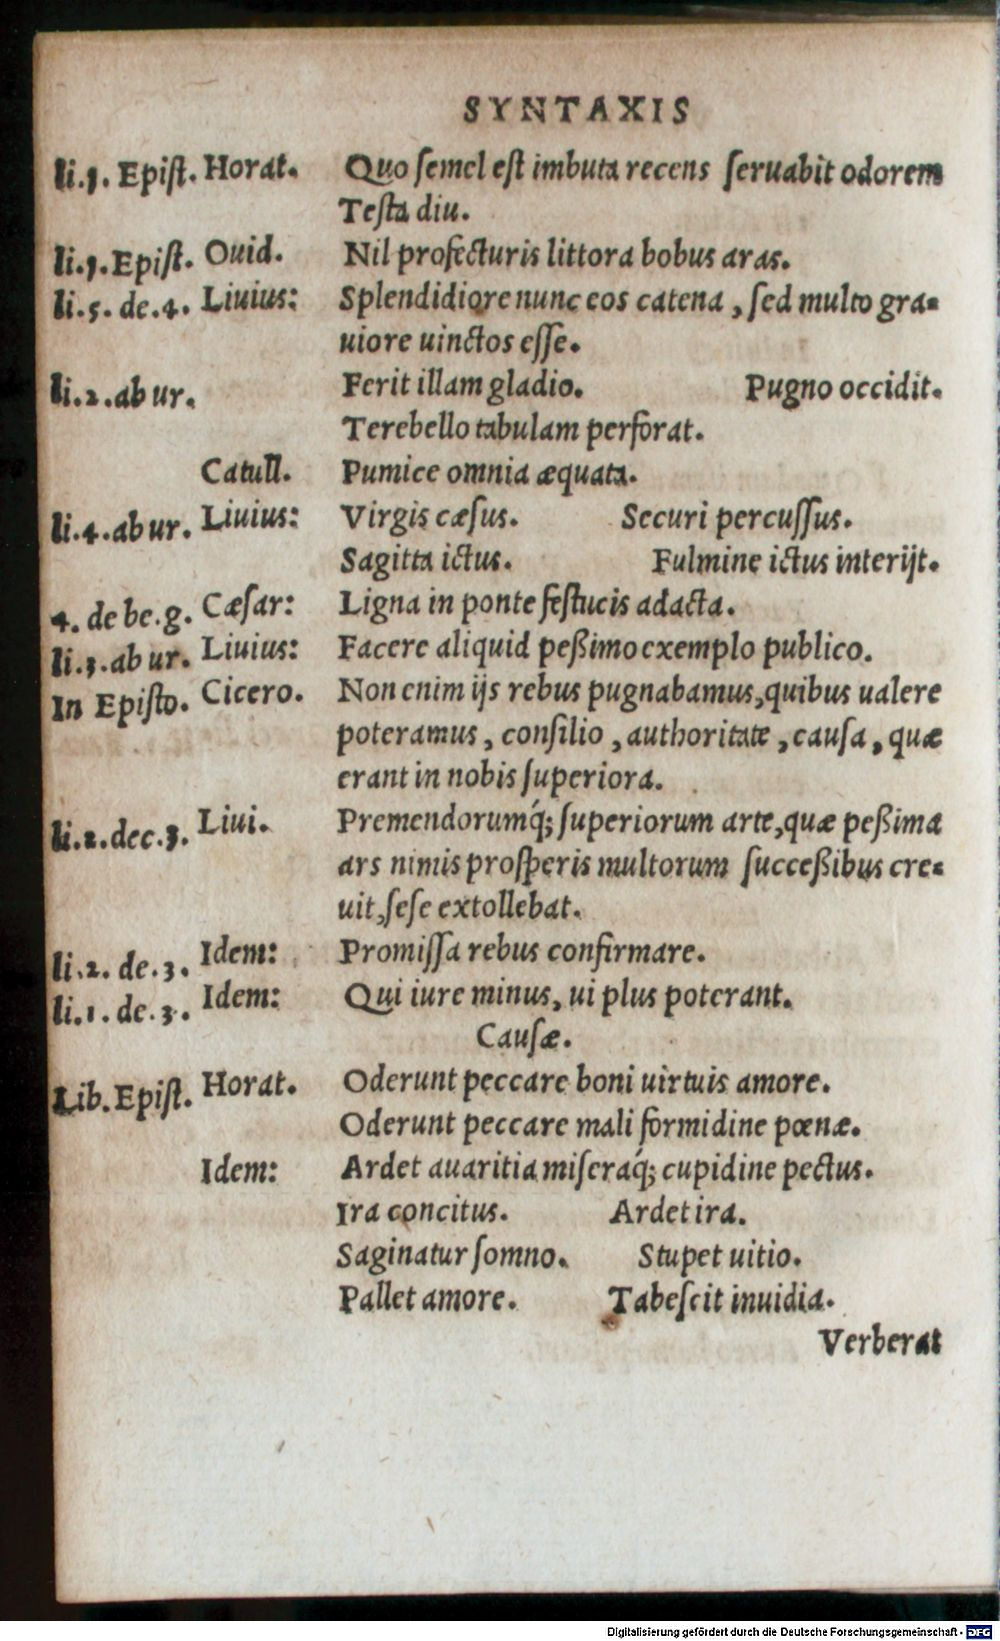 SYNTAXIS
li.1. Epist. Horat. Quo semel est imbuta recens seruabit odorem
Testa diu.
li.1. Epist. Ouid. Nil profecturis littora bobus aras.
li.5. de.4. Liuius: Splendidiore nunc eos catena, sed multo gra-
uiore uinctos esse.
li.2.ab ur. Ferit illam gladio. Pugno occidit.
Terebello tabulam perforat.
Catull. Pumice omnia æquata.
li.4.ab ur. Liuius: Virgis cæsus. Securi percussus.
Sagitta ictus. Fulmine ictus interijt.
4. de be.g. Cæsar: Ligna in ponte festucis adacta.
li.3.ab ur. Liuius: Facere aliquid peßimo exemplo publico.
In Episto. Cicero. Non enim ijs rebus pugnabamus, quibus ualere
poteramus, consilio, authoritate, causa, quæ
erant in nobis superiora.
li.2.dec.3. Liui. Premendorumq́; superiorum arte, quæ peßima
ars nimis prosperis multorum succeßibus cre-
uit, sese extollebat.
li.2. de.3. Idem: Promissa rebus confirmare.
li.1. de.3. Idem: Qui iure minus, ui plus poterant.
Causæ.
Lib. Epist. Horat. Oderunt peccare boni uirtuis amore.
Oderunt peccare mali formidine pœnæ.
Idem: Ardet auaritia miseraq́; cupidine pectus.
Ira concitus. Ardet ira.
Saginatur somno. Stupet uitio.
Pallet amore. Tabescit inuidia.
Verberat
Digitalisierung gefördert durch die Deutsche Forschungsgemeinschaft - DFG